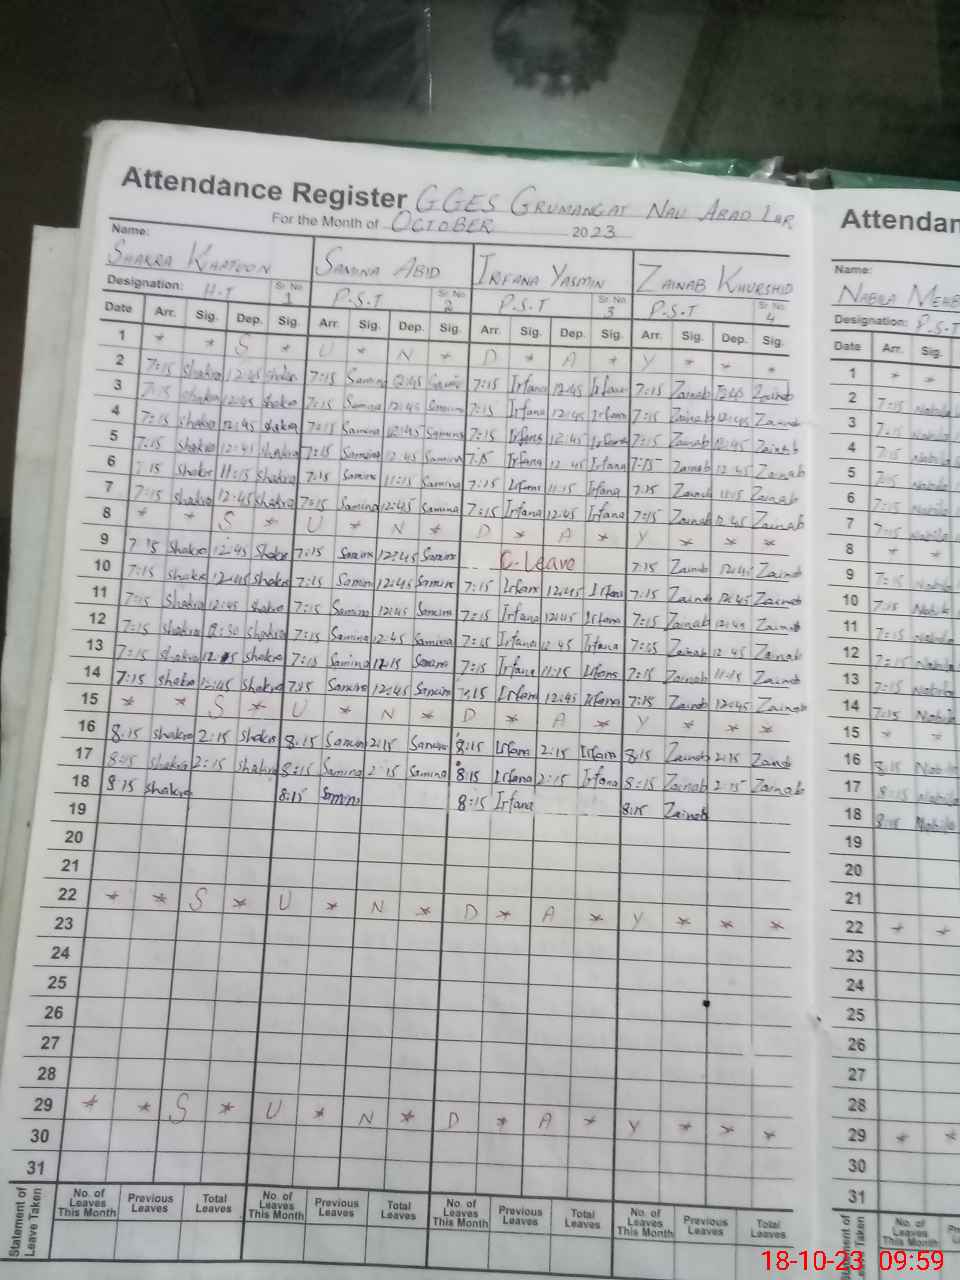 Attendance Register GGES GRUMANGAT NAU ABAD LHR
For the Month of OCTOBER 2023
Name:
SHAKRA KHATOON SAMINA ABID IRFANA YASMIN ZAINAB KHURSHID
Designation: H.T Sr. No 1 P.S.T Sr. No 2 P.S.T Sr. No 3 P.S.T Sr. No 4
Date Arr. Sig. Dep. Sig. Arr. Sig. Dep. Sig. Arr. Sig. Dep. Sig. Arr. Sig. Dep. Sig.
1 * * S * U * N * D * A * Y * * *
2 7:15 Shakra 12:45 Shakra 7:15 Samina 12:45 7:15 Irfana 12:45 Irfana 7:15 Zainab 12:45 Zainab
3 7:15 Shakra 12:45 Shakra 7:15 Samina 12:45 Samina 7:15 Irfana 12:45 Irfana 7:15 Zainab 12:45 Zainab
4 7:15 Shakra 12:45 Shakra 7:15 Samina 12:45 Samina 7:15 Irfana 12:45 Irfana 7:15 Zainab 12:45 Zainab
5 7:15 Shakra 12:45 Shakra 7:15 Samina 12:45 Samina 7:15 Irfana 12:45 Irfana 7:15 Zainab 12:45 Zainab
6 7:15 Shakra 11:15 Shakra 7:15 Samina 11:15 Samina 7:15 Irfana 11:15 Irfana 7:15 Zainab 11:15 Zainab
7 7:15 Shakra 12:45 Shakra 7:15 Samina 12:45 Samina 7:15 Irfana 12:45 Irfana 7:15 Zainab 12:45 Zainab
8 * * S * U * N * D * A * Y * * *
9 7:15 Shakra 12:45 Shakra 7:15 Samina 12:45 Samina C-Leave 7:15 Zainab 12:45 Zainab
10 7:15 Shakra 12:45 Shakra 7:15 Samina 12:45 Samina 7:15 Irfana 12:45 Irfana 7:15 Zainab 12:45 Zainab
11 7:15 Shakra 12:45 Shakra 7:15 Samina 12:45 Samina 7:15 Irfana 12:45 Irfana 7:15 Zainab 12:45 Zainab
12 7:15 Shakra Shakra 7:15 Samina 12:45 Samina 7:15 Irfana 12:45 Irfana 7:15 Zainab 12:45 Zainab
13 7:15 Shakra Shakra 7:15 Samina 12:15 Samina 7:15 Irfana 11:15 Irfana 7:15 Zainab 11:15 Zainab
14 7:15 Shakra 12:45 Shakra 7:15 Samina 12:45 Samina 7:15 Irfana 12:45 Irfana 7:15 Zainab 12:45 Zainab
15 * * S * U * N * D * A * Y * * *
16 8:15 Shakra 2:15 Shakra 8:15 Samina 2:15 Samina 8:15 Irfana 2:15 Irfana 8:15 Zainab 2:15 Zainab
17 8:15 Shakra 2:15 Shakra 8:15 Samina 2:15 Samina 8:15 Irfana 2:15 Irfana 8:15 Zainab 2:15 Zainab
18 8:15 Shakra 8:15 Samina 8:15 Irfana 8:15 Zainab
19
20
21
22 * * S * U * N * D * A * Y * * *
23
24
25
26
27
28
29 * * S * U * N * D * A * Y * * *
30
31
Statement of Leave Taken
No. of Leaves This Month Previous Leaves Total Leaves No. of Leaves This Month Previous Leaves Total Leaves No. of Leaves This Month Previous Leaves Total Leaves No. of Leaves This Month Previous Leaves Total Leaves
Attendan
Name:
NABILA MEHB
Designation: P.S.T
Date Arr. Sig.
1 * *
2 7:15 Nabila
3 7:15 Nabila
4 7:15 Nabila
5 7:15 Nabila
6 7:15 Nabila
7 7:15 Nabila
8 * *
9 7:15 Nabila
10 7:15 Nabila
11 7:15 Nabila
12 7:15 Nabila
13 7:15 Nabila
14 7:15 Nabila
15 * *
16 8:15 Nabila
17 8:15 Nabila
18 8:15 Nabila
19
20
21
22 * *
23
24
25
26
27
28
29 * *
30
31
No. of Leaves
18-10-23 09:59